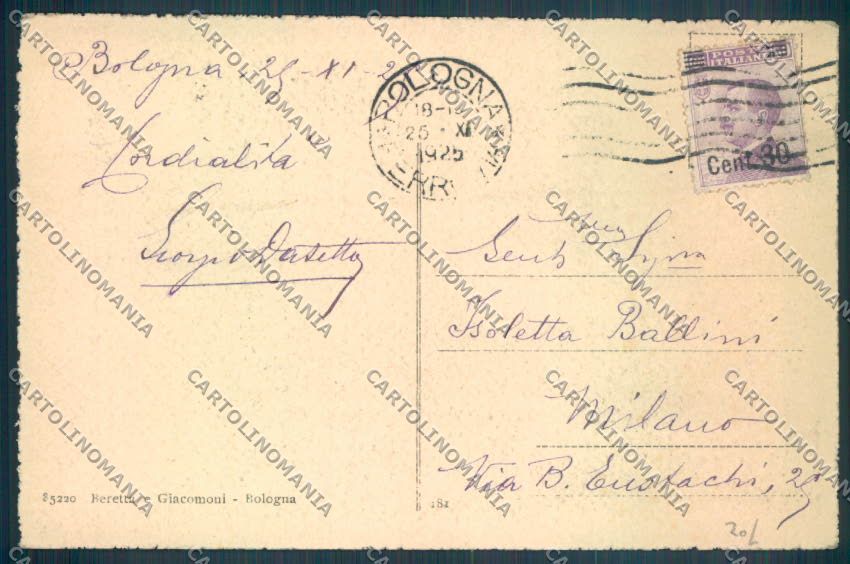 Bologna 25-XI-2
Cordialità
Giorgio
BOLOGNA
18-19
25 XI
1925
FERR
POSTE
ITALIANE
Cent. 30
Gent.ma Sig.na
Isoletta Ballini
Milano
Via B. Eustachi, 2
85220 Beretta e Giacomoni - Bologna
181
201
CARTOLINOMANIA